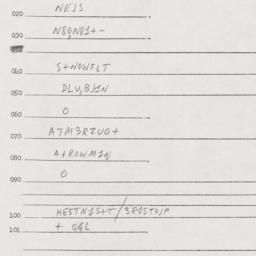 020 NEJS
030 N8QN81+-
040 S+NOWFLT
050 DLV,8J1N
060 O
070 A7M3RZUG+
080 A+ROWM1N
090 O
100 HESTN1S+T/3R1STOJP
101 + GGL